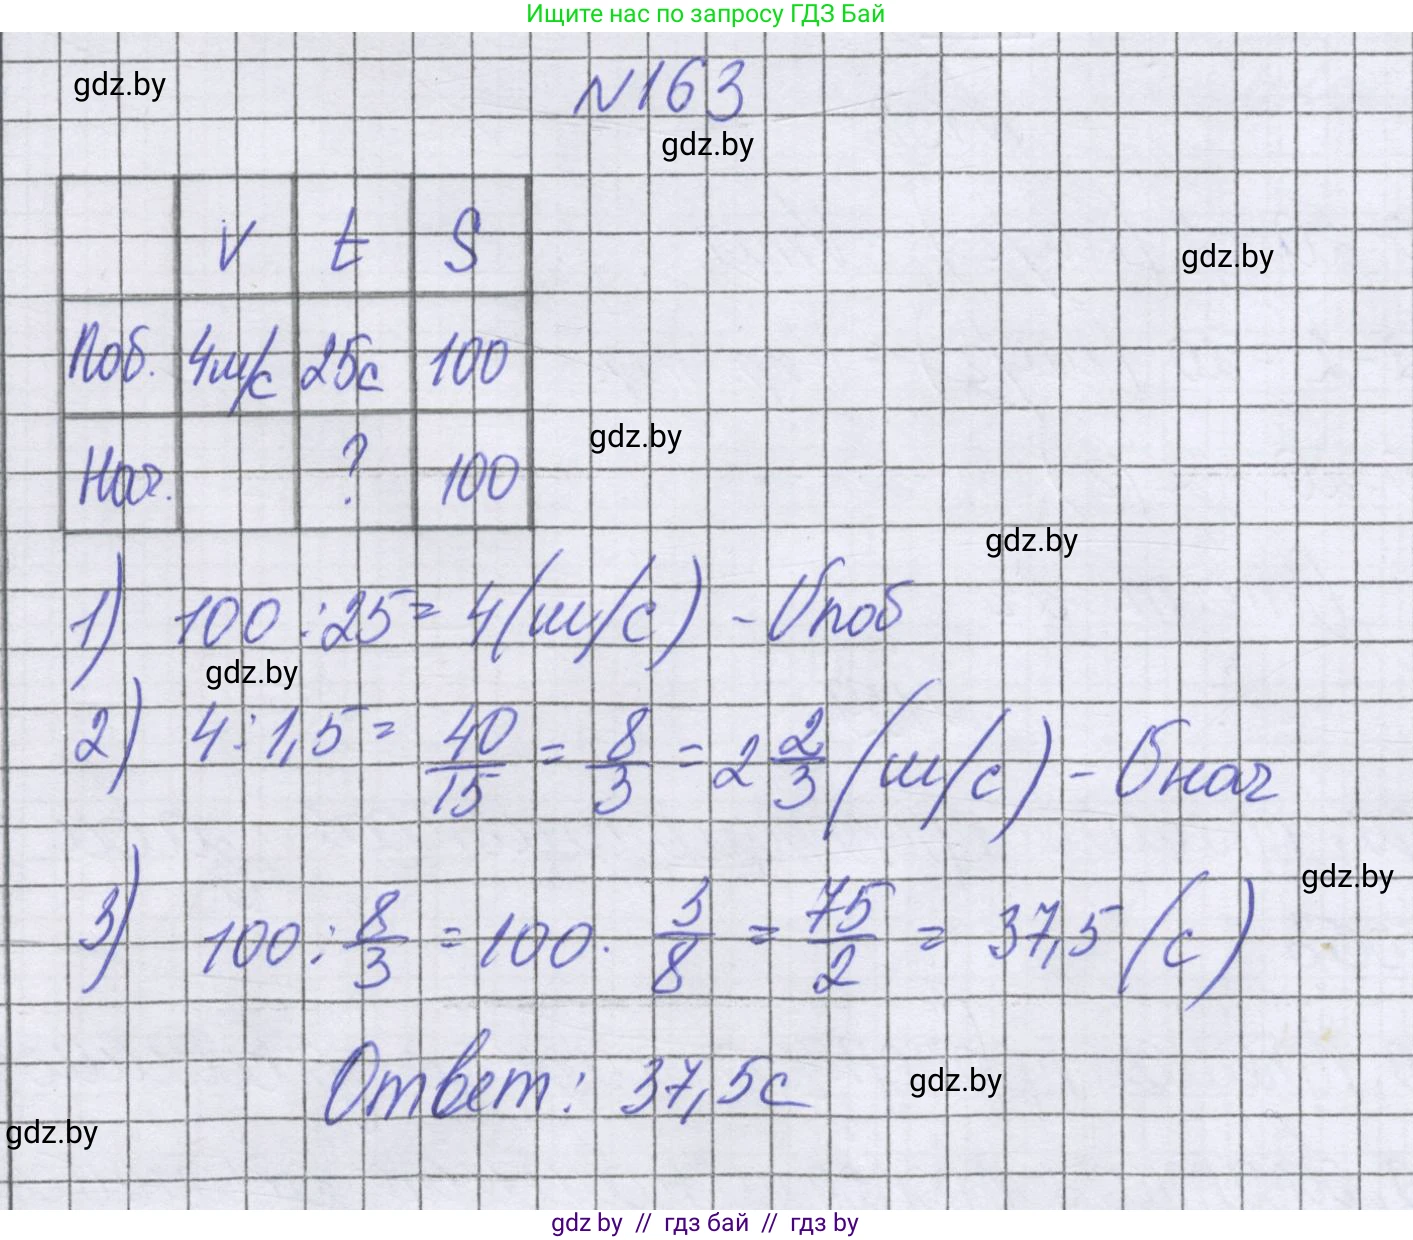 Ищите нас по запросу ГДЗ Бай
gdz.by
N163
gdz.by
V t S
gdz.by
Поб. 4м/с 25с 100
gdz.by
Нач. ? 100
gdz.by
1) 100 : 25 = 4 (м/с) - Vпоб
gdz.by
2) 4 : 1,5 = 40/15 = 8/3 = 2 2/3 (м/с) - Vнач
gdz.by
3) 100 : 8/3 = 100 · 3/8 = 75/2 = 37,5 (с)
Ответ: 37,5с
gdz.by
gdz.by
gdz by // гдз бай // гдз by